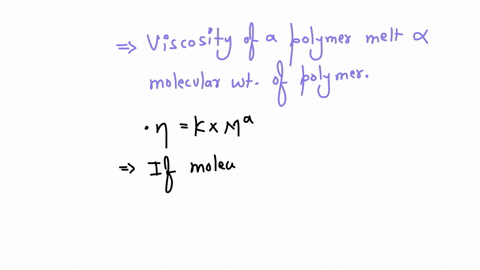 ⇒ Viscosity of a polymer melt ∝
molecular wt. of polymer.
· η = K × Mᵃ
⇒ If molecu